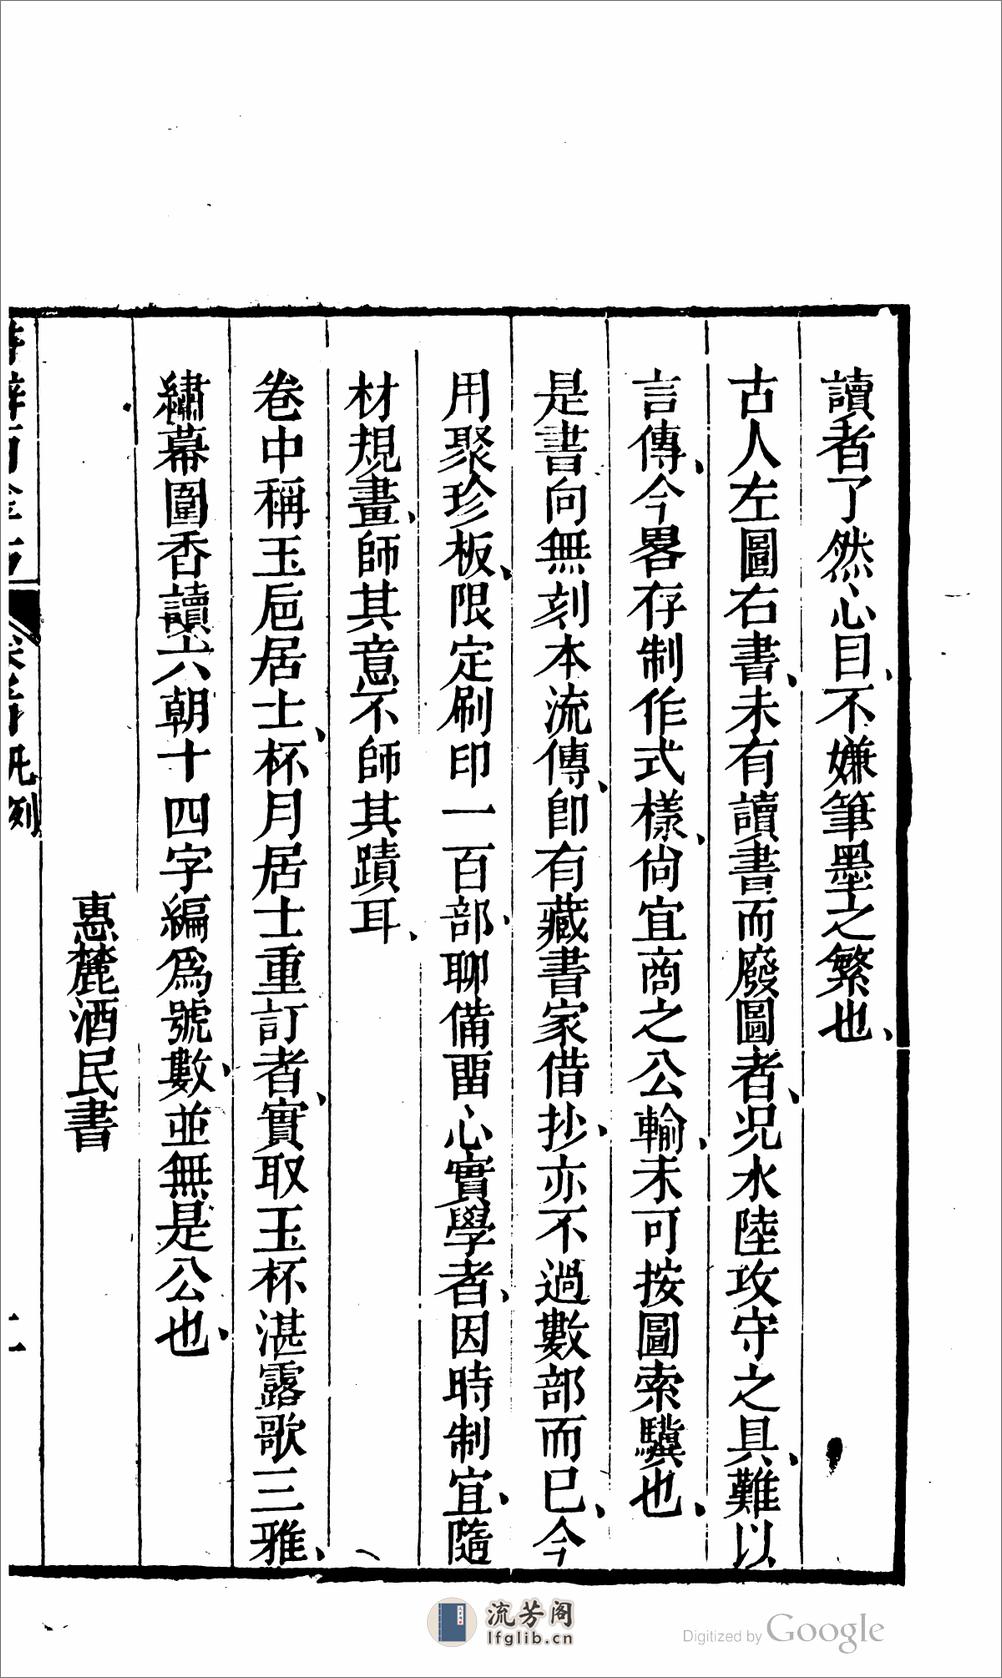 讀者了然心目、不嫌筆墨之繁也、
古人左圖右書、未有讀書而廢圖者、况水陸攻守之具、難以
言傳、今畧存制作式樣、尙宜商之公輸、未可按圖索驥也、
是書向無刻本流傳、卽有藏書家借抄、亦不過數部而已、今
用聚珍板、限定刷印一百部、聊備畱心實學者、因時制宜、隨
材規畫、師其意不師其蹟耳、
卷中稱玉巵居士、杯月居士重訂者、實取玉杯湛露歌三雅、
繡幕圍香讀六朝十四字編爲號數、並無是公也、
惠麓酒民書
凡例
流芳阁
lfglib.cn
Digitized by Google